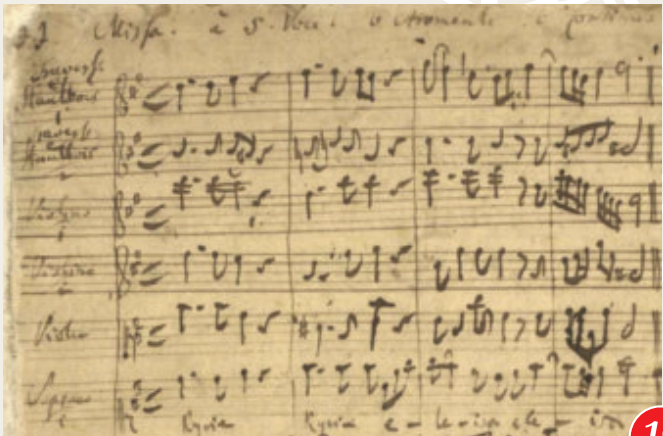 J. J. Missa. à 5. Voci. 6 Stromenti e Continuo
Traverse
Hautbois
1
Traverse
Hautbois
2
Violino
1
Violino
2
Viola
Soprano
1
Kyrie Kyrie e - le - ison ele - ison
1